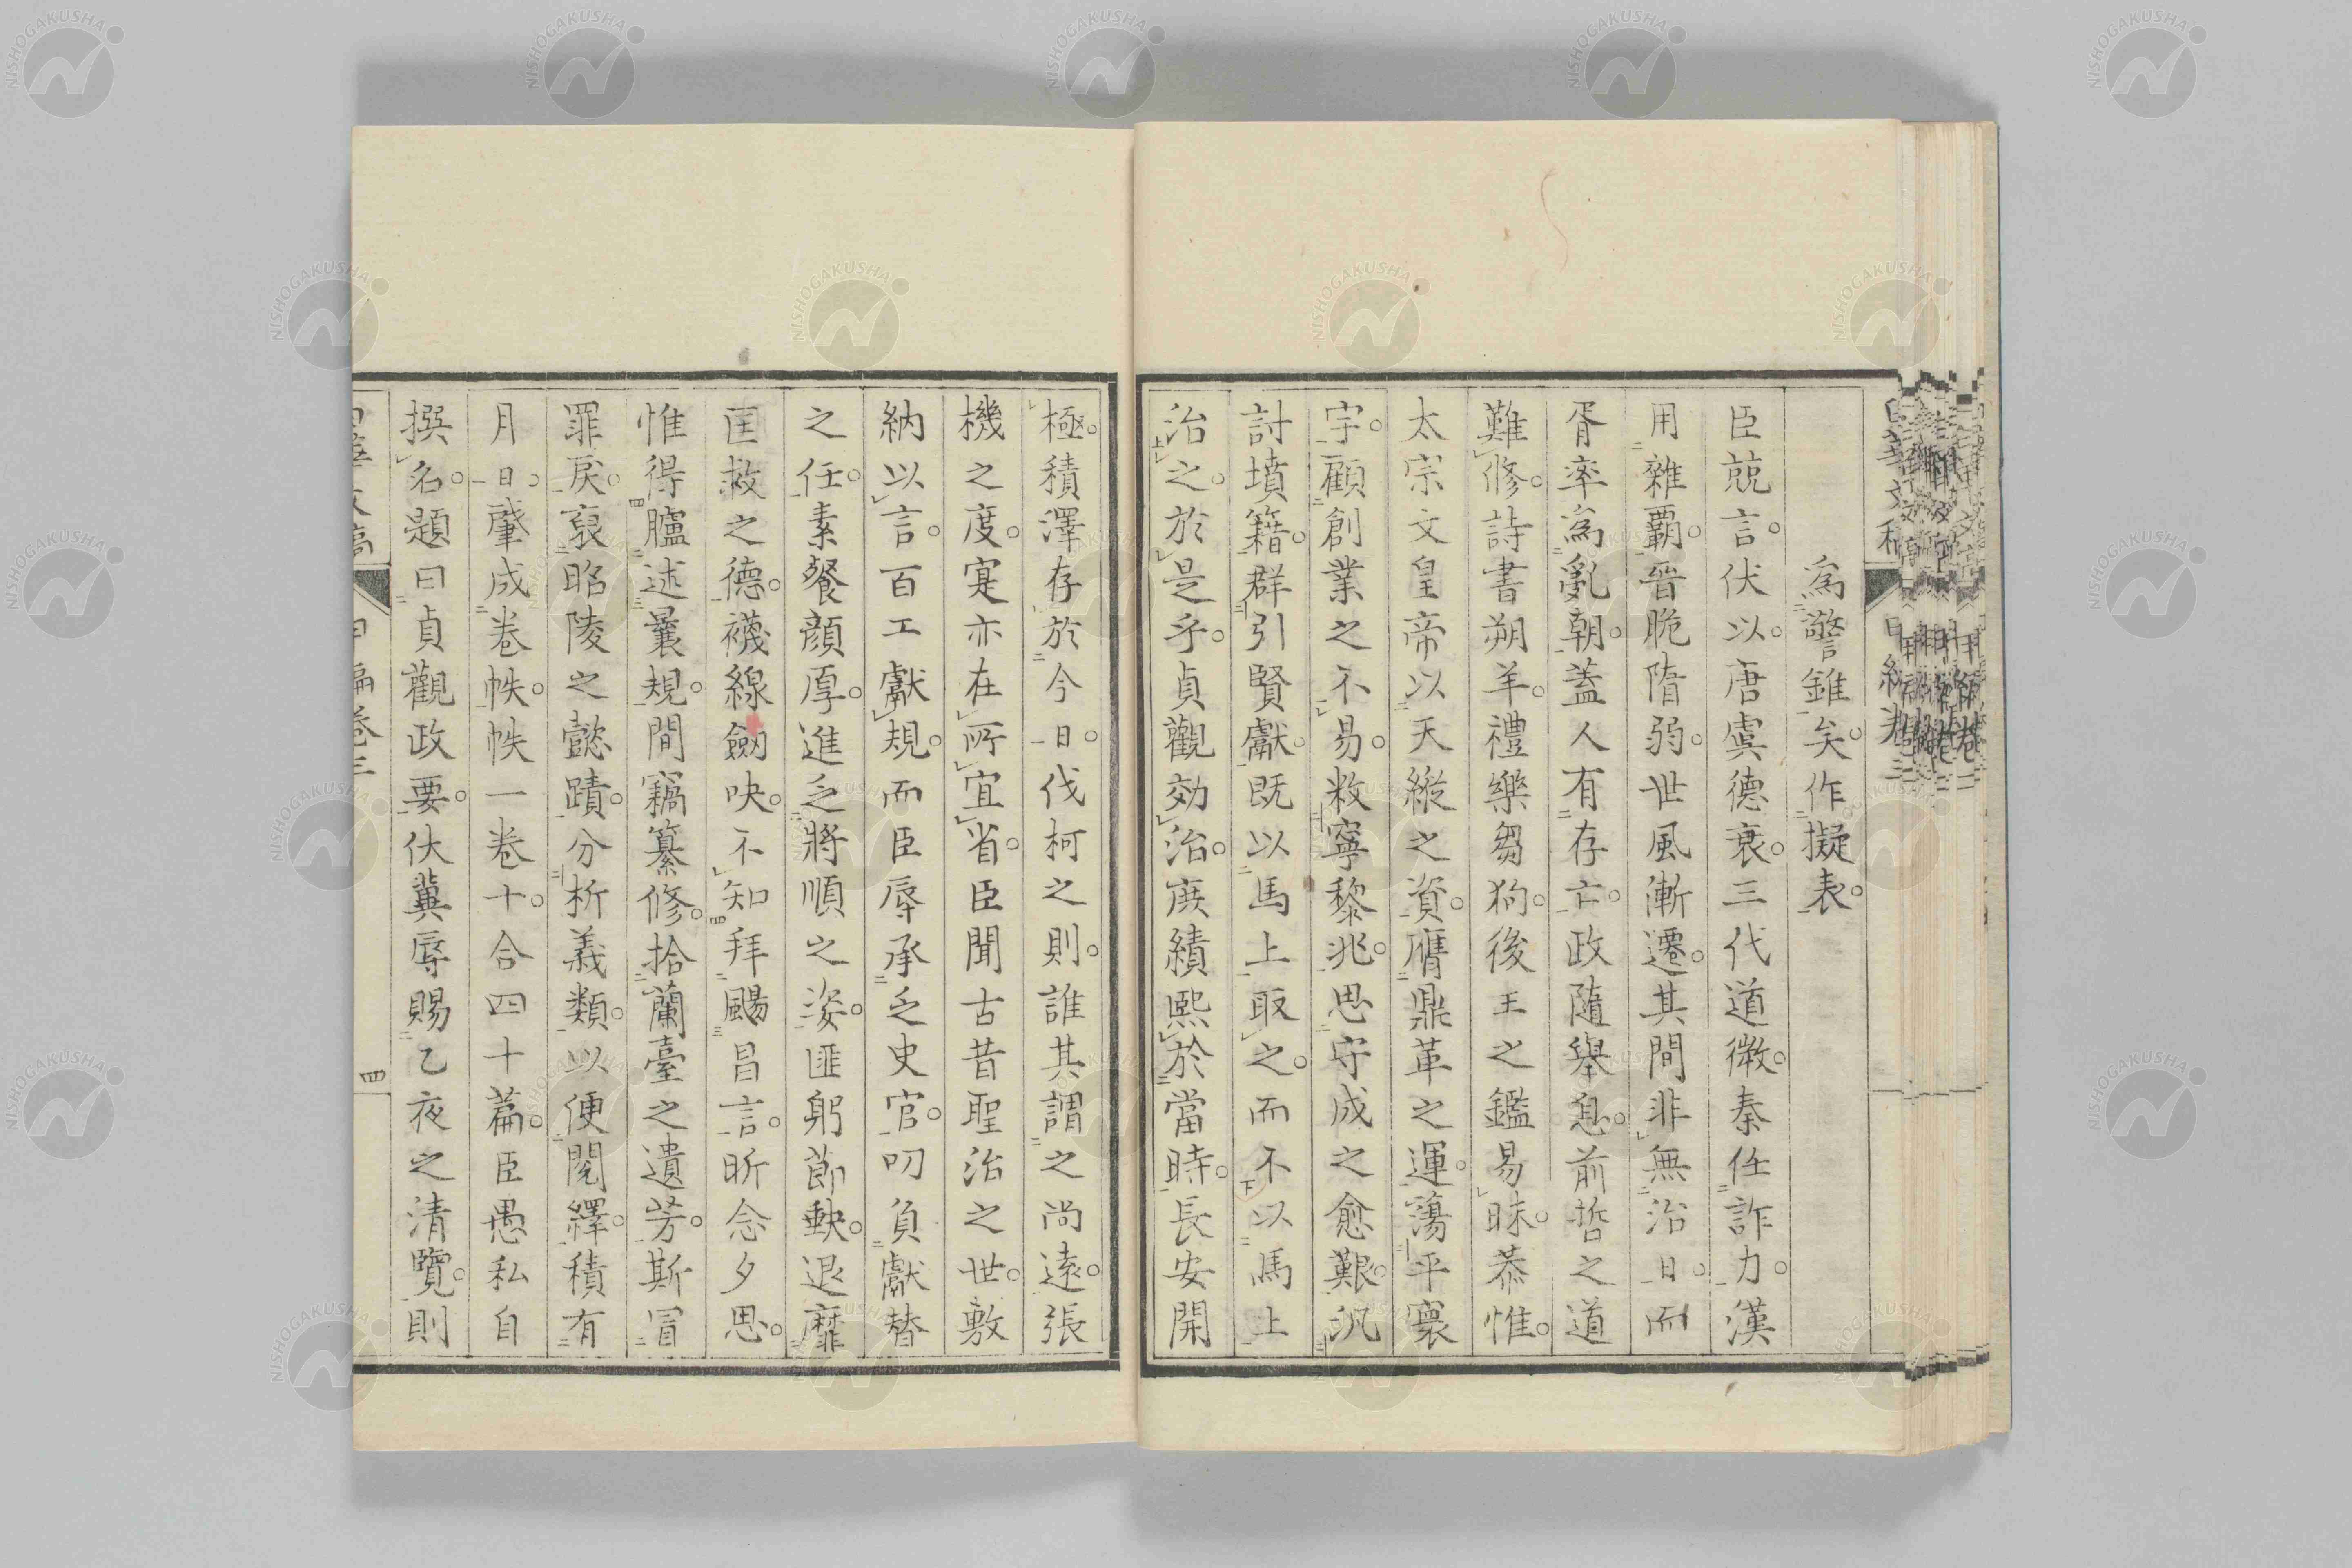 爲警錐矣。作擬表。
臣兢言。伏以。唐虞德衰。三代道微。秦任詐力。漢
用雜覇。晉脆隋弱。世風漸遷。其間非無治日。而
胥率爲亂朝。蓋人有存亡。政隨擧息。前哲之道
難修。詩書朔羊。禮樂芻狗。後王之鑑易昧。恭惟。
太宗文皇帝以天縱之資。膺鼎革之運。蕩平寰
宇。顧創業之不易。敉寧黎兆。思守成之愈艱。汎
討墳籍。群引賢獻。既以馬上取之。而不以馬上
治之。於是乎。貞觀効治。庶績熙於當時。長安開
極。積澤存於今日。伐柯之則。誰其謂之尚遠。張
機之度。寔亦在所宜省。臣聞古昔聖治之世。敷
納以言。百工獻規。而臣辱承乏史官。叨負獻替
之任。素餐顔厚。進乏將順之姿。匪躬節缺。退靡
匡救之德。襪線劒吷。不知拜颺昌言。昕念夕思。
惟得臚述曩規。間竊纂修。拾蘭臺之遺芳。斯冒
罪戻。裒昭陵之懿蹟。分析義類。以便閲繹。積有
月日。肇成卷帙。帙一卷十。合四十篇。臣愚私自
撰名。題曰貞觀政要。伏冀辱賜乙夜之清覽。則
四
NISHOGAKUSHA